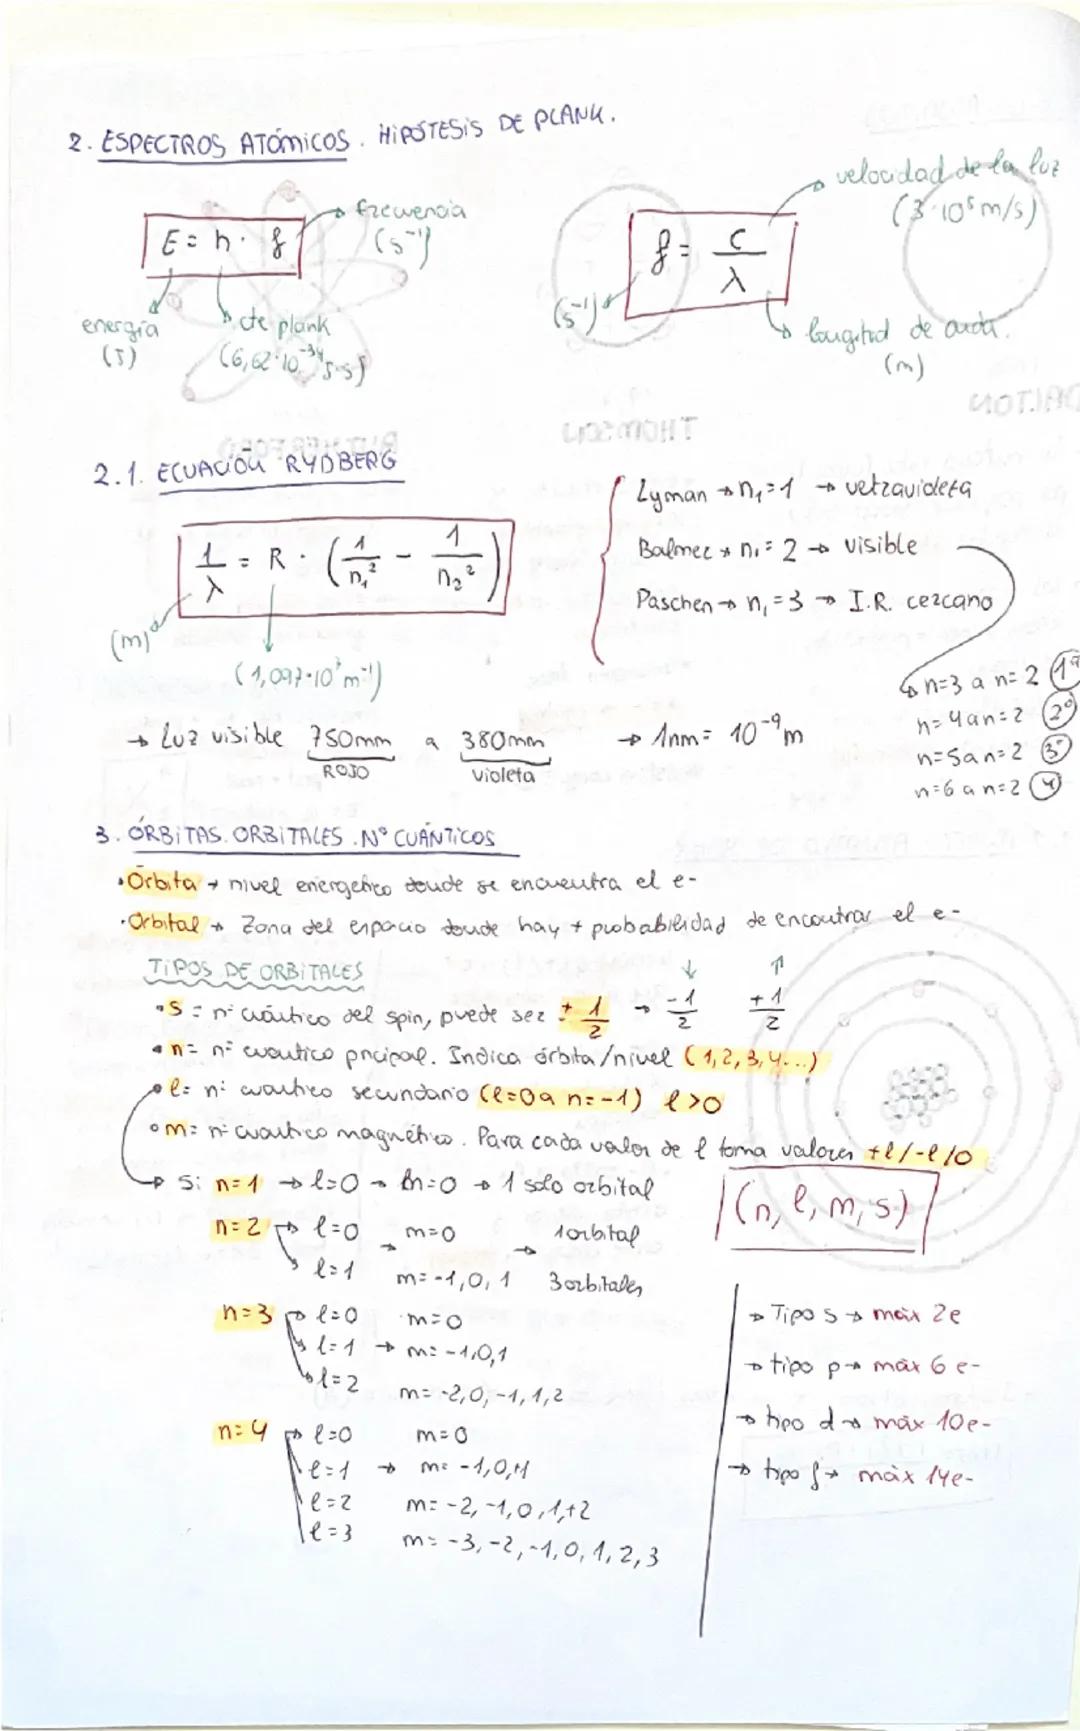 2. ESPECTROS ATÓMICOS. HIPÓTESIS DE PLANK.
E = h · f
frecuencia
(s⁻¹)
energía
(J)
cte plank
(6,62·10⁻³⁴ J·s)
f = c/λ
velocidad de la luz
(3·10⁸ m/s)
(s⁻¹)
longitud de onda.
(m)
2.1. ECUACIÓN RYDBERG
1/λ = R · (1/n₁² - 1/n₂²)
(m)
(1,097·10⁷ m⁻¹)
Lyman → n₁=1 → ultravioleta
Balmer → n₁=2 → visible
Paschen → n₁=3 → I.R. cercano
n=3 a n=2 1ª
n=4 a n=2 2º
n=5 a n=2 3º
n=6 a n=2 4
→ Luz visible 750mm a 380mm → 1nm = 10⁻⁹m
ROJO violeta
3. ÓRBITAS. ORBITALES. Nº CUÁNTICOS
· Órbita → nivel energético donde se encuentra el e-
· Orbital → Zona del espacio donde hay + probabilidad de encontrar el e-
TIPOS DE ORBITALES ↓ ↑
· S = nº cuántico del spin, puede ser ± 1/2 → -1/2 +1/2
· n = nº cuántico pncipal. Indica órbita/nivel (1,2,3,4...)
· l = nº cuántico secundario (l=0 a n=-1) l>0
· m = nº cuántico magnético. Para cada valor de l toma valores +l/-l/0
→ Si n=1 → l=0 → m=0 → 1 solo orbital
(n, l, m, s)
n=2 → l=0 → m=0 → 1 orbital
l=1 m=-1,0,1 3 orbitales
n=3 → l=0 m=0
l=1 → m=-1,0,1
l=2 m=-2,0,-1,1,2
n=4 → l=0 m=0
l=1 → m=-1,0,+1
l=2 m=-2,-1,0,1,+2
l=3 m=-3,-2,-1,0,1,2,3
→ Tipo s → máx 2e
→ tipo p → máx 6 e-
→ tipo d → máx 10e-
→ tipo f → máx 14e-